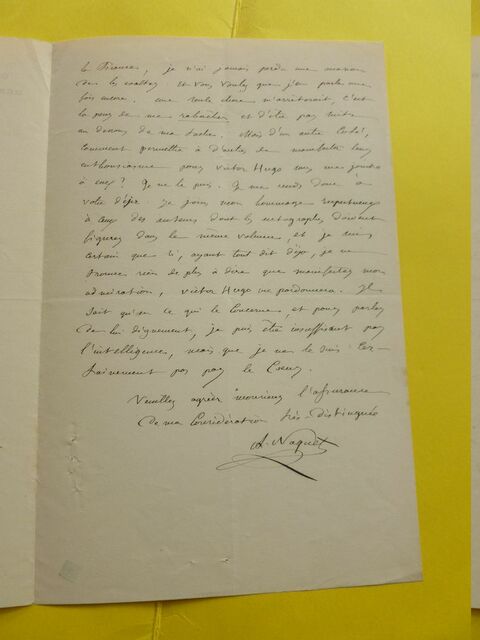 la France, je n'ai jamais perdu une occasion
de les exalter. Et vous voulez que j'en parle une
fois encore. Une seule chose m'arrêterait, c'est
la peur de me rabâcher et d'être pas suite
au dessous de ma tache. Mais d'un autre côté,
comment permettre à d'autres de manifester leur
enthousiasme pour Victor Hugo sans me joindre
à eux? Je ne le puis. Je me rends donc à
votre désir. Je joins mon hommage respectueux
à ceux des auteurs dont les autographes doivent
figurer dans le même volume, et je suis
certain que si, ayant tout dit déjà, je ne
trouve rien de plus à dire que manifester mon
admiration, Victor Hugo me pardonnera. Il
sait qu'en ce qui le concerne, et pour parler
de lui dignement, je puis être insuffisant par
l'intelligence, mais que je ne le suis cer-
tainement pas par le cœur.
Veuillez agréer monsieur l'assurance
de ma considération très distinguée
A. Naquet